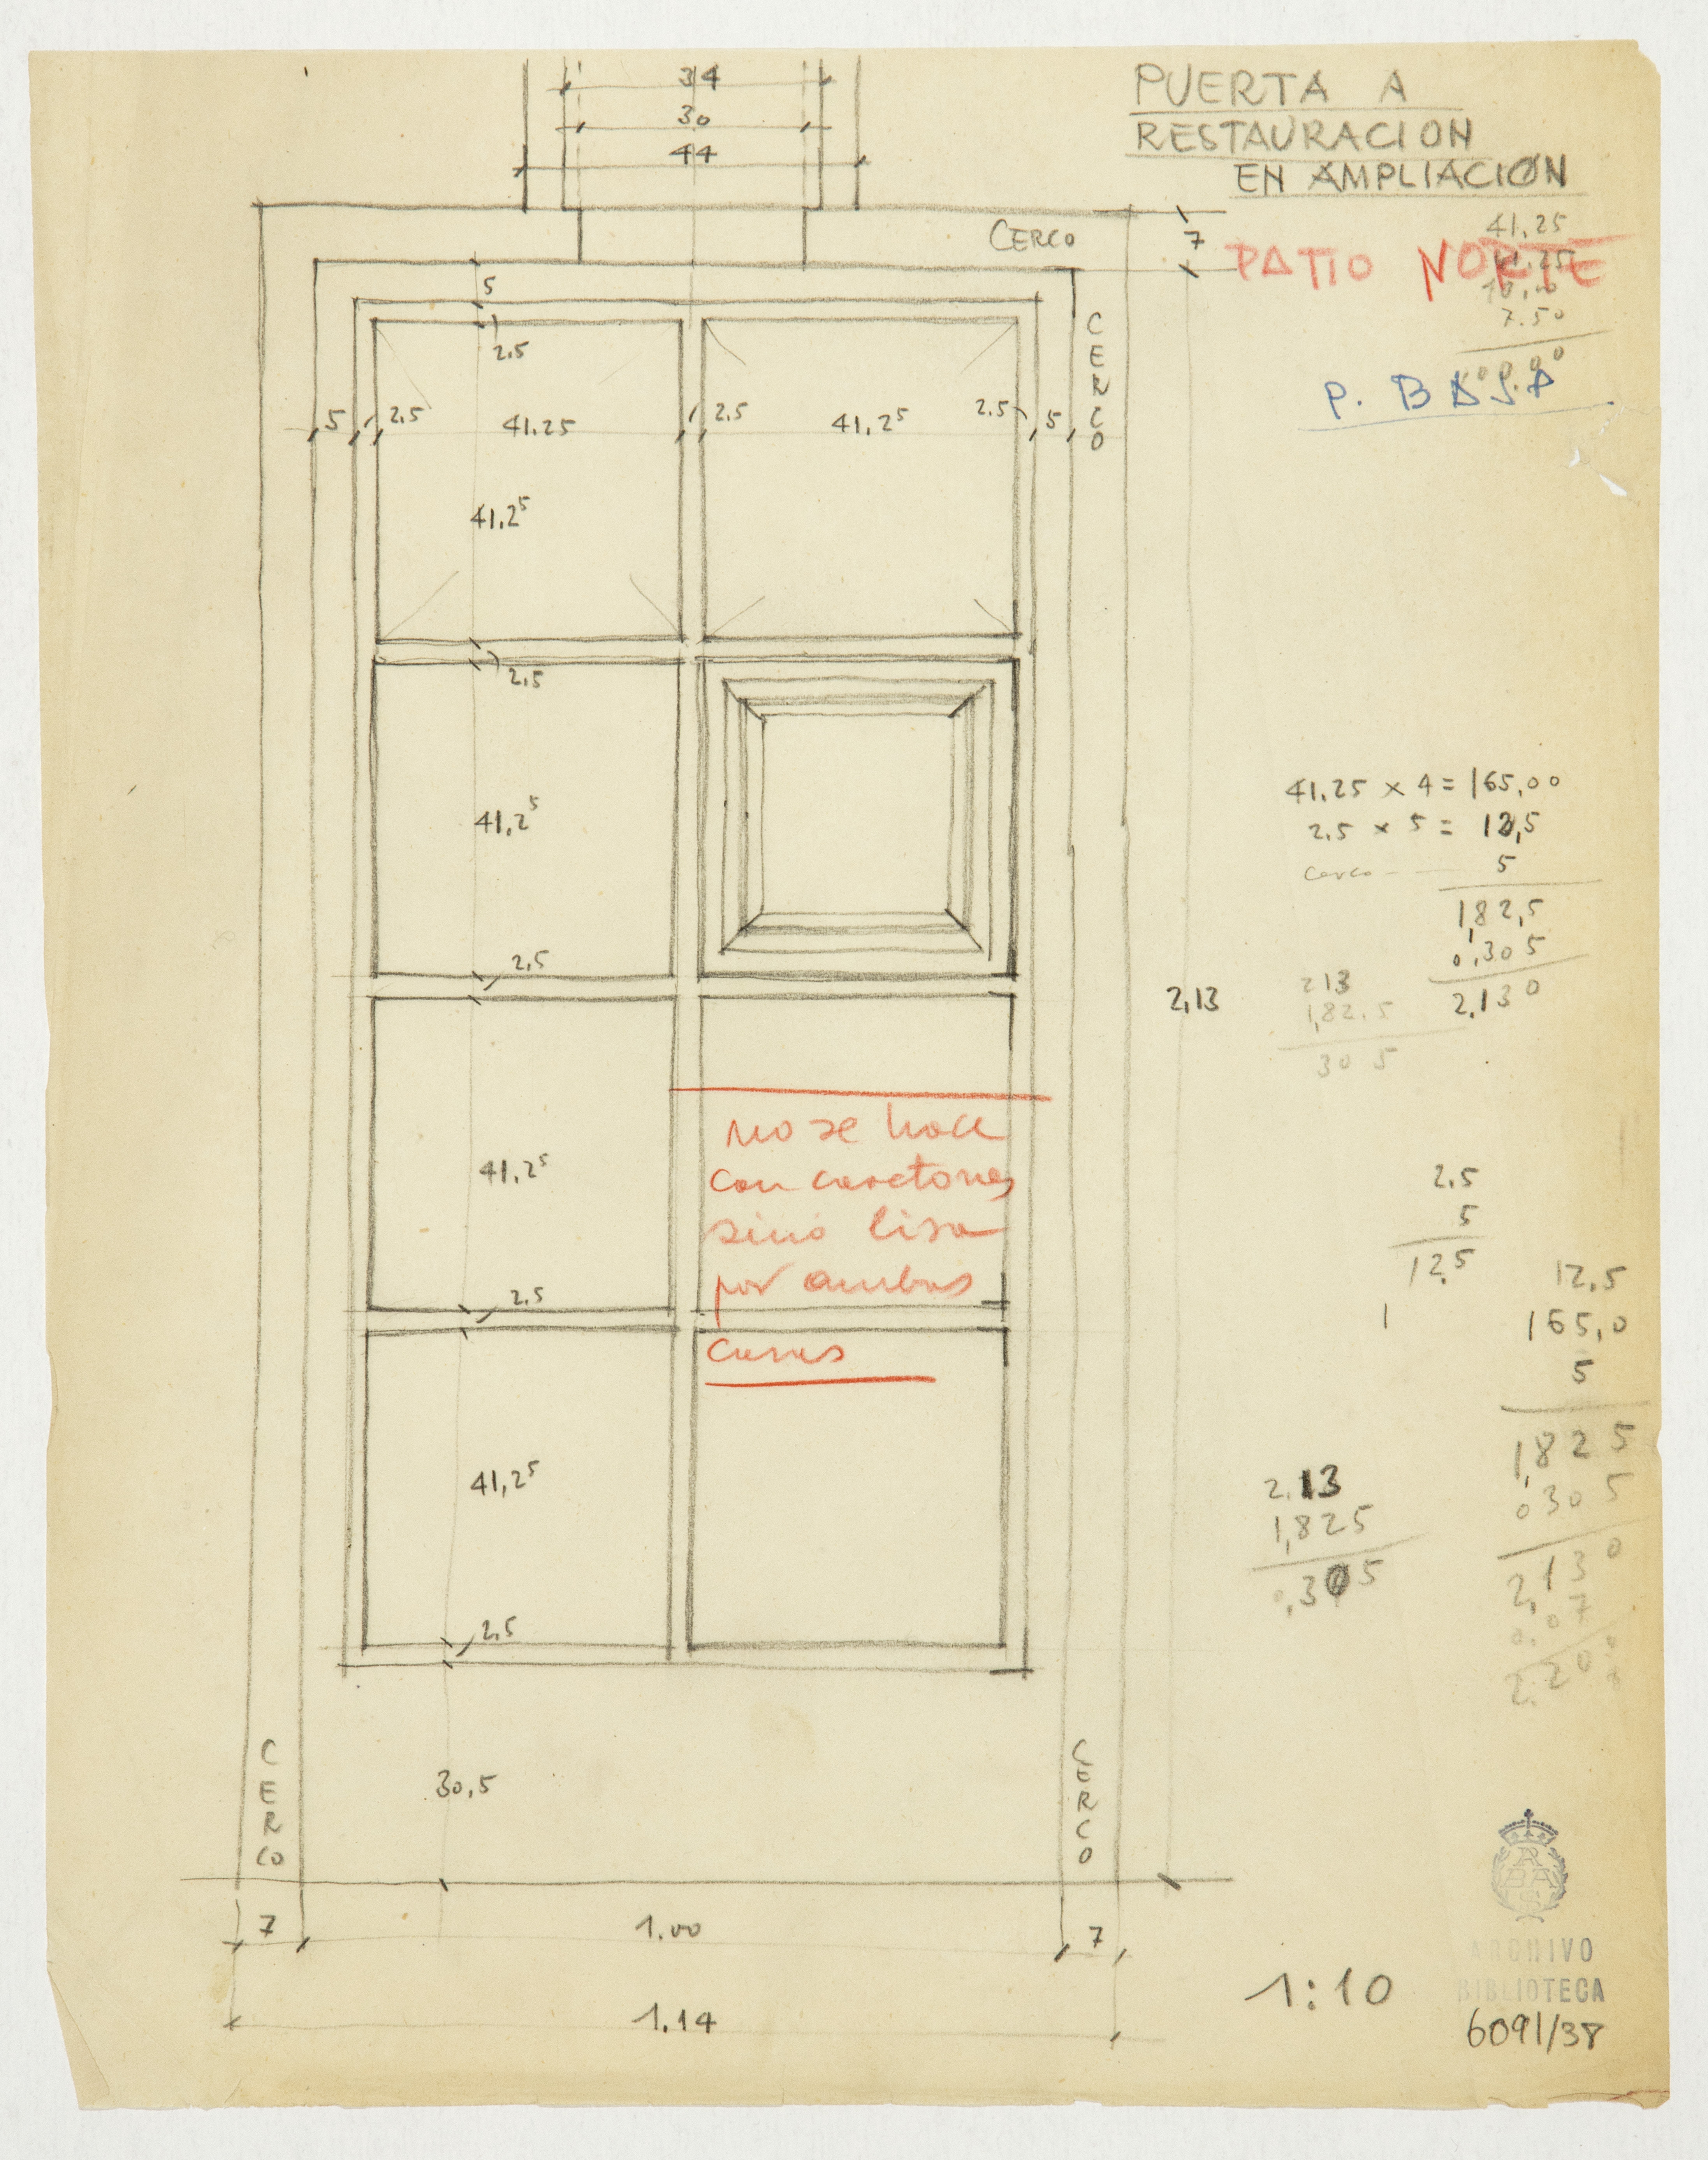 34
30
44
PUERTA A
RESTAURACION
EN AMPLIACIÓN
41,25
7.50
PATIO NORTE
P. BAJA
CERCO
7
5
2,5
CERCO
5
2,5
41,25
2,5
41,25
2,5
5
41,25
2,5
41,25
41.25 x 4 = 165,00
2,5 x 5 = 12,5
cerco - 5
1,82,5
0,305
2,130
213
1,82.5
305
2,13
2,5
no se hace
con curetones
sinó lisa
por ambas
caras
41,25
2,5
2,5
5
12,5
1
12,5
165,0
5
1,825
0305
2,130
0.07
2.20
41,25
2.13
1,825
0,305
2,5
30,5
CERCO
CERCO
7
1.00
7
1.14
1:10
RABASF
ARCHIVO
BIBLIOTECA
6091/38